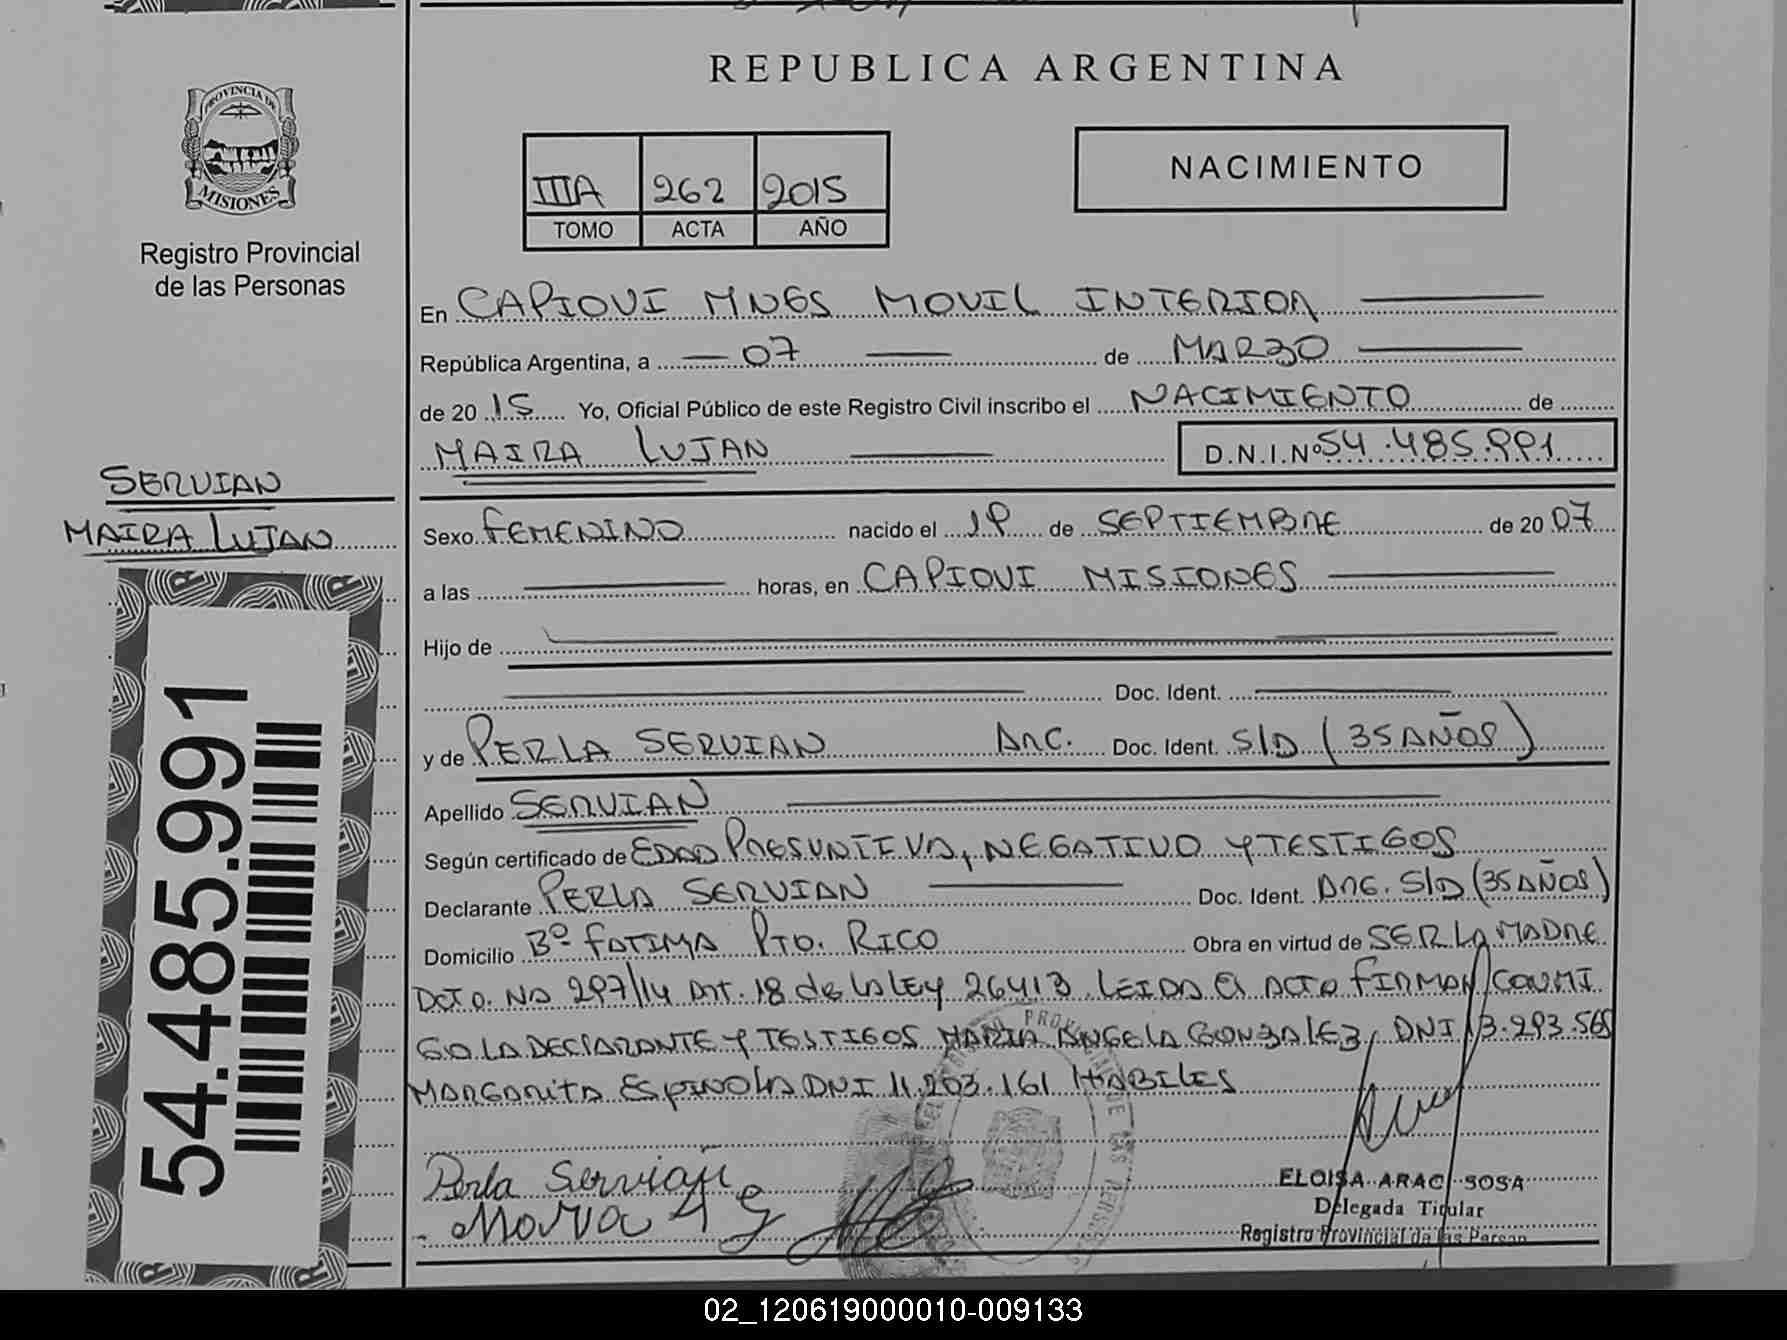 REPUBLICA ARGENTINA
PROVINCIA DE
MISIONES
Registro Provincial
de las Personas
IIIA 262 2015
TOMO ACTA AÑO
NACIMIENTO
En CAPIOVI MNES MOVIL INTERIOR
República Argentina, a 07 de MARZO
de 20 15 Yo, Oficial Público de este Registro Civil inscribo el NACIMIENTO de
MAIRA LUJAN D.N.I.Nº 54.485.991
SERVIAN
MAIRA LUJAN
Sexo FEMENINO nacido el 19 de SEPTIEMBRE de 20 07
a las horas, en CAPIOVI MISIONES
Hijo de
Doc. Ident.
y de PERLA SERVIAN ARG. Doc. Ident. S/D (35 AÑOS)
Apellido SERVIAN
Según certificado de EDAD PRESUNTIVA, NEGATIVO Y TESTIGOS
Declarante PERLA SERVIAN Doc. Ident. ARG. S/D (35 AÑOS)
Domicilio Bº FATIMA PTO. RICO Obra en virtud de SER LA MADRE
DCTO. NA 297/14 ART. 18 de la LEY 26413. LEIDA El ACTA FIRMAN CONMI
GO LA DECLARANTE Y TESTIGOS MARIA ANGELA GONZALEZ, DNI 13.293.565
MARGARITA ESPINOLA DNI 11.203.161 HABILES
Perla Servian
Maria A G
ELOISA ARACI SOSA
Delegada Titular
Registro Provincial de las Person
54.485.991
02_120619000010-009133